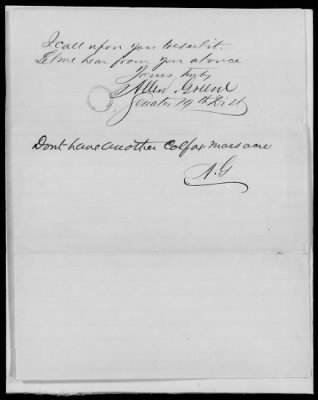 I call upon you to see to it.
Let me hear from you at once
Yours truly
Allen Greene
Senator 19th Dist
Dont have another Colfax massacre
A.G